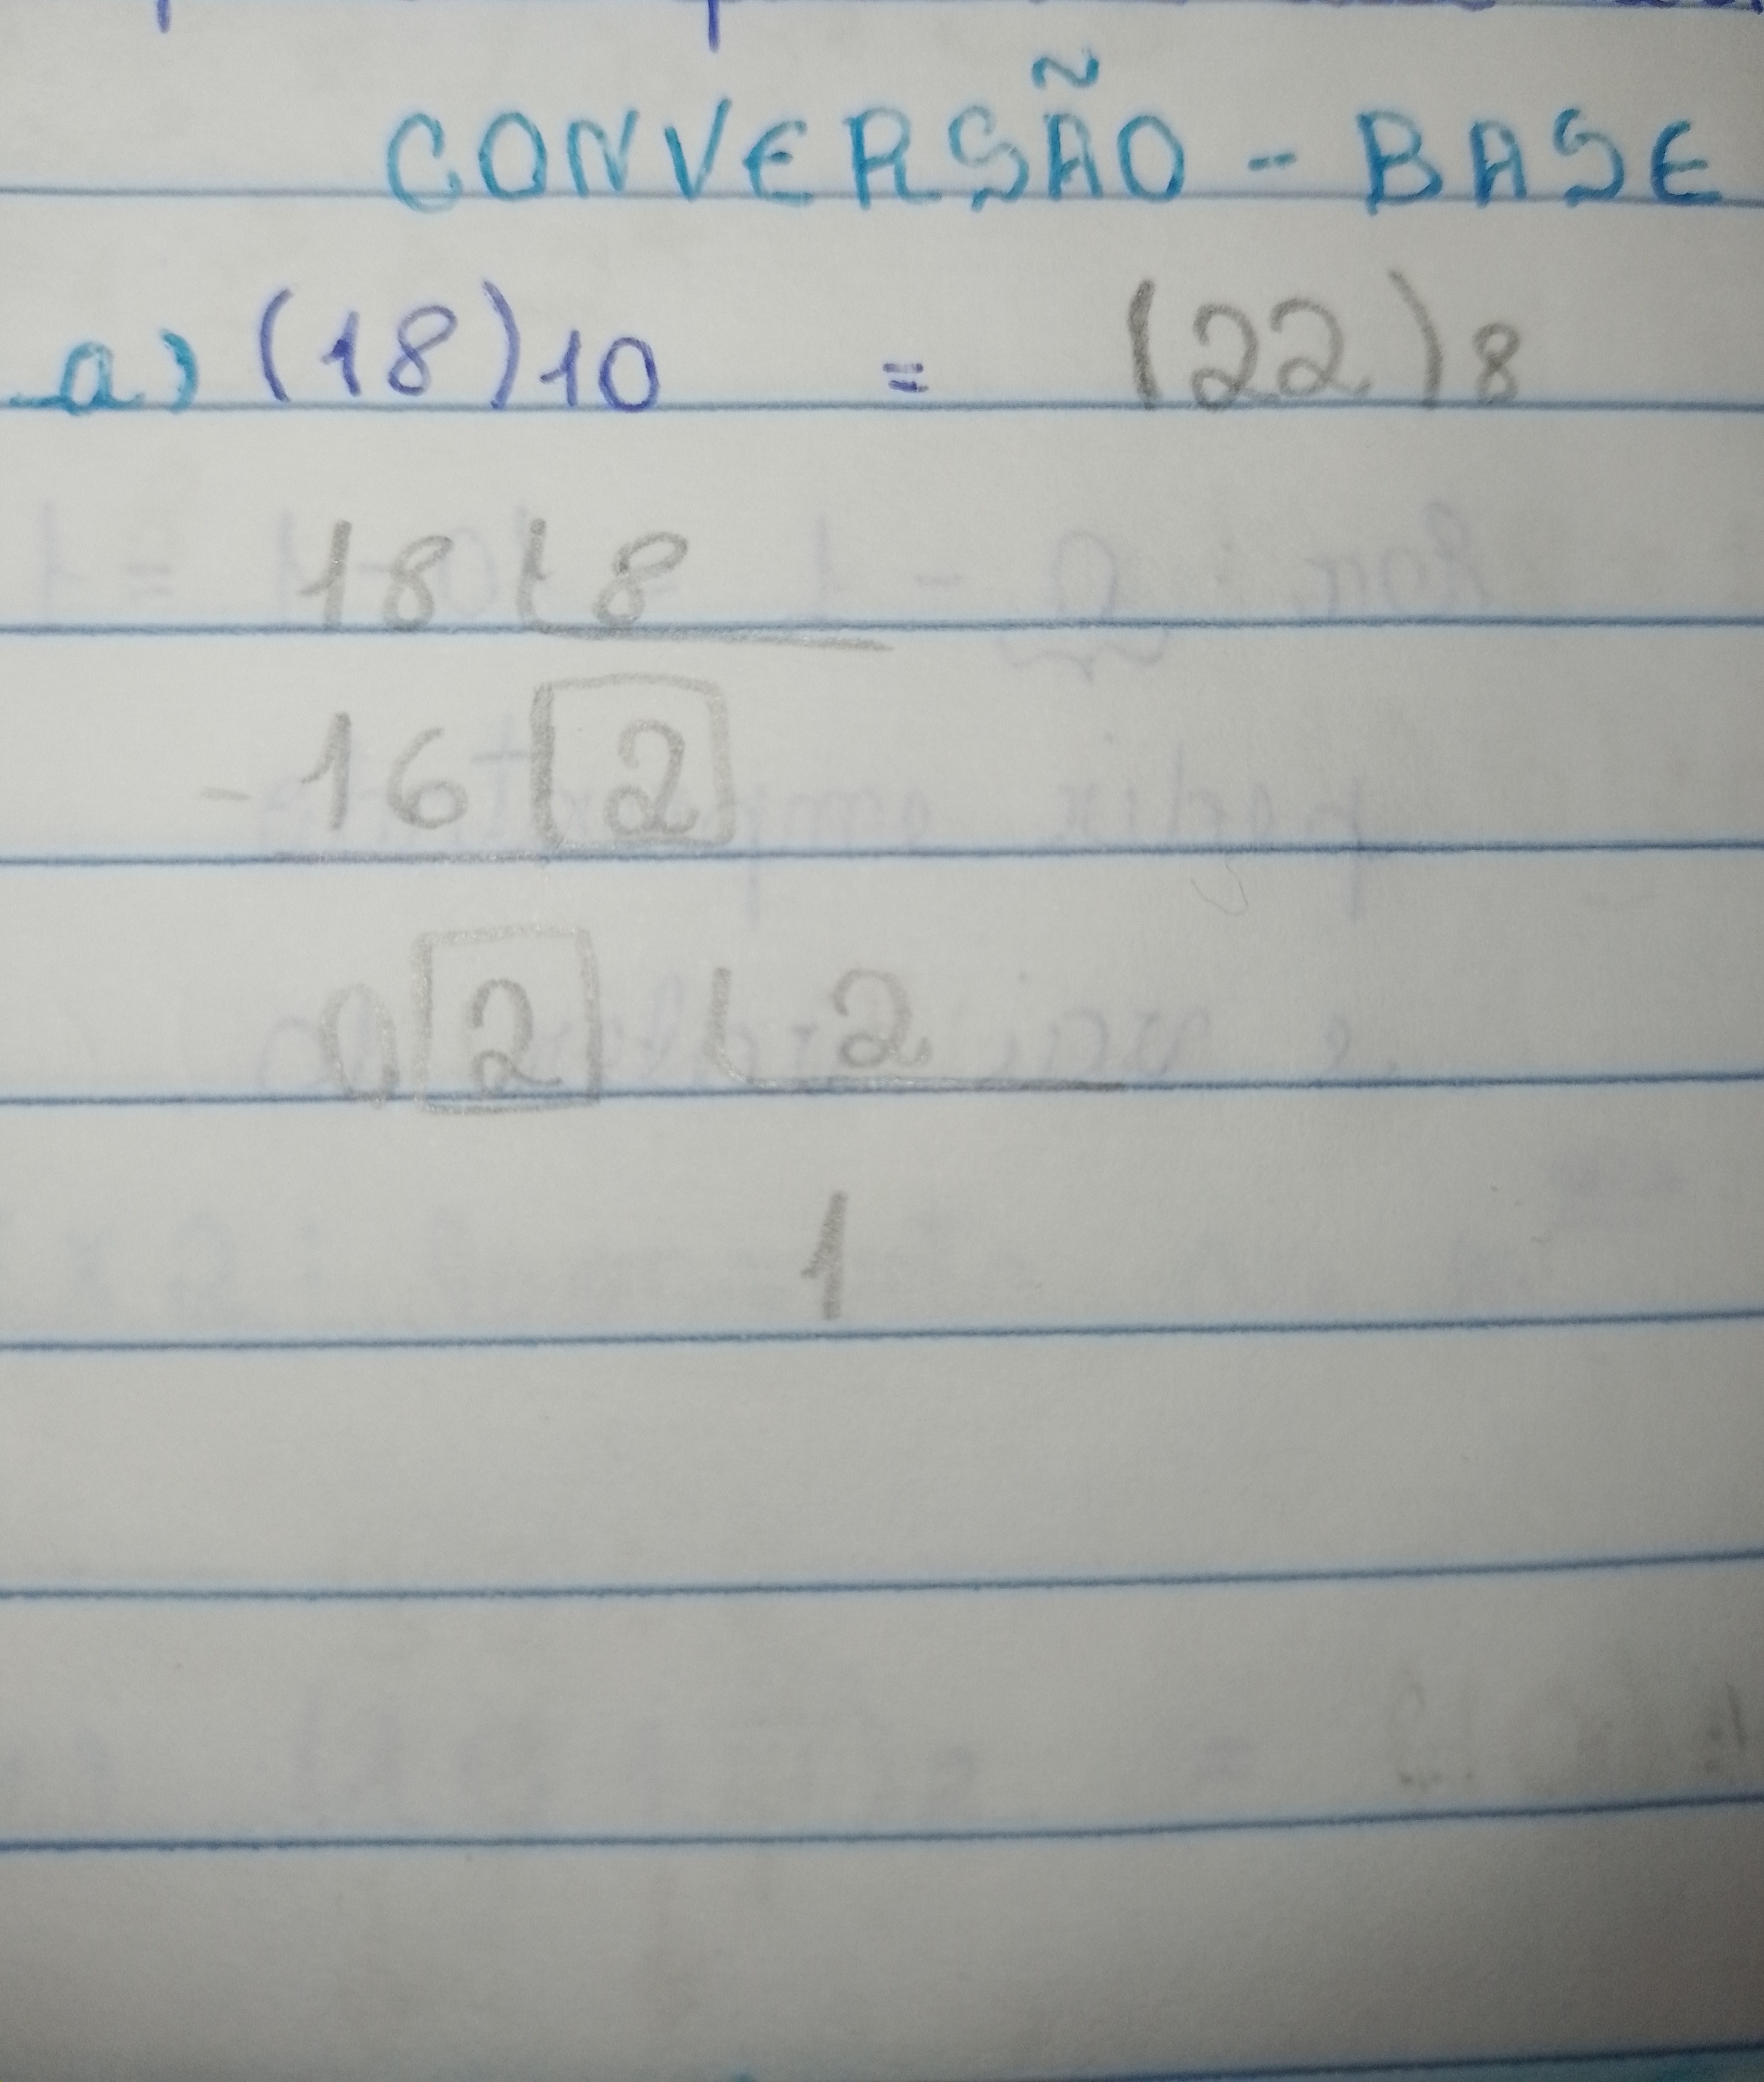 CONVERSÃO - BASE
a) (18)10 = (22)8
18 8
- 16 2
0 2 2
1